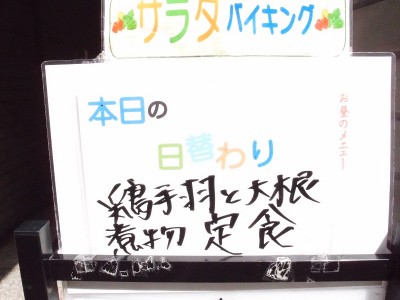 サラダバイキング
お昼のメニュー
本日の
日替わり
鶏手羽と大根
煮物定食